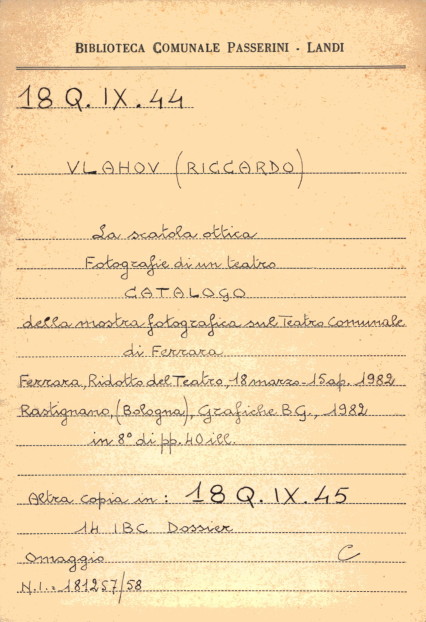 BIBLIOTECA COMUNALE PASSERINI - LANDI
18 Q. IX. 44
VLAHOV (RICCARDO)
La scatola ottica
Fotografie di un teatro
CATALOGO
della mostra fotografica sul Teatro Comunale
di Ferrara
Ferrara, Ridotto del Teatro, 18 marzo - 15 ap. 1982
Rastignano, (Bologna), Grafiche B.G., 1982
in 8° di pp. 40 ill.
Altra copia in: 18 Q. IX. 45
14 IBC Dossier
Omaggio C
N.I.: 181257/58